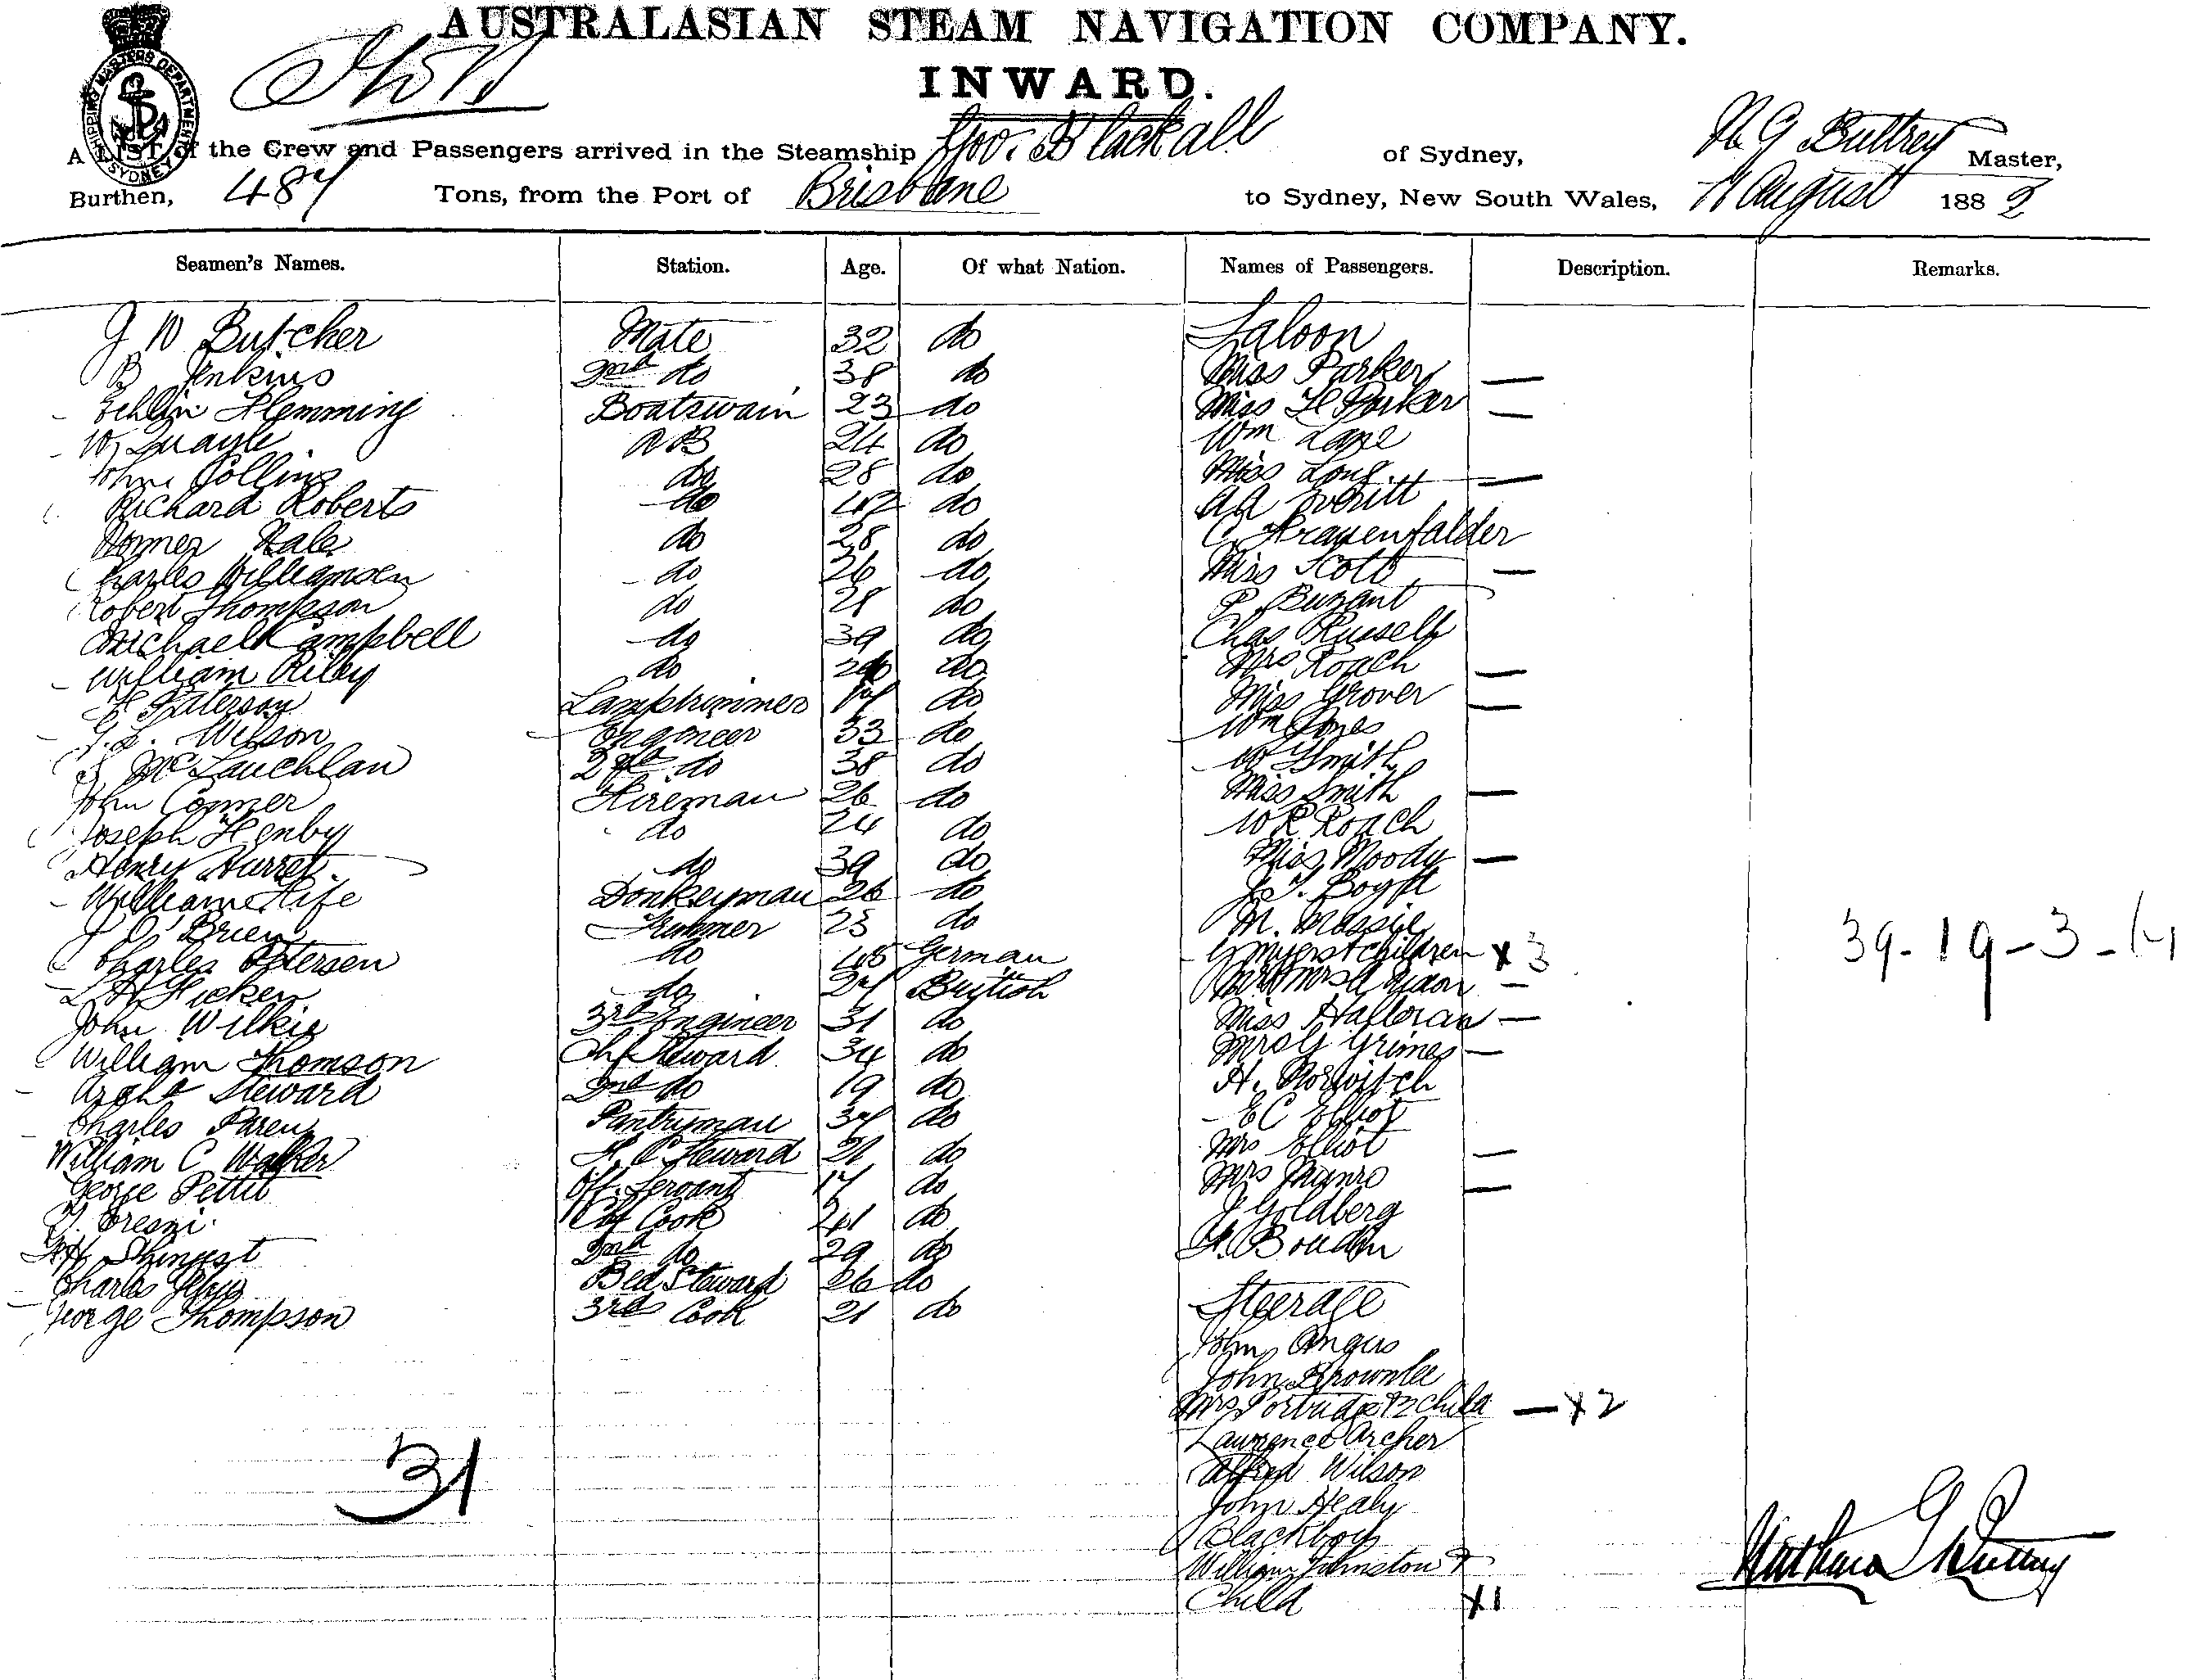 AUSTRALASIAN STEAM NAVIGATION COMPANY.
INWARD.
SHIPPING MASTERS DEPARTMENT SYDNEY
A LIST of the Crew and Passengers arrived in the Steamship Gov. Blackall of Sydney, N G Buttrey Master,
Burthen, 487 Tons, from the Port of Brisbane to Sydney, New South Wales, 11 August 1882
Seamen's Names. Station. Age. Of what Nation. Names of Passengers. Description. Remarks.
G W Butcher Mate 32 do Saloon
B Jenkins 2nd do 38 do Miss Parker —
Echlin Flemming Boatswain 23 do Miss H Parker —
W Quayle AB 24 do Wm Lane
John Collins do 28 do Miss Long —
Richard Roberts do 42 do AA Everitt
Kale do 28 do C
Charles Williamsen do 26 do Miss Scott —
Robert Thompson do 28 do P
Michael Campbell do 39 do Chas Russell
William Riley do do Mrs Roach —
Paterson Lamptrimmer 17 do Miss Grover —
Wilson Engineer 33 do Wm Jones
J McLauchlan 2nd do 38 do W Smith
John Conner Fireman 26 do Miss Smith —
Joseph Henby do 24 do W R Roach
Henry do 39 do Miss Moody —
William Fife Donkeyman 26 do Boyd
J O'Brien Trimmer 23 do M. Massie
Charles Petersen do 45 German G Myers + children x 3
Hicken do 27 British Mr & Mrs —
John Wilkie 3rd Engineer 31 do Miss Halloran —
William Thomson Chf Steward 34 do Mrs G Grimes —
Archd Steward 2nd do 19 do H.
Charles Paren Pantryman 37 do E C Elliot
William C Walker F. C Steward 21 do Mrs Elliot —
George Pettit Off. Servant 17 do Mrs Munro —
Chf Cook 41 do J Goldberg
2nd do 29 do
Charles Bed Steward 26 do Steerage
George Thompson 3rd Cook 21 do
John Angus
John Brownlee
Mrs & 2 Child — x 2
Lawrence Archer
Alfred Wilson
John Healy
Blackboy
William Johnston &
Child x1
31
39-19-3-